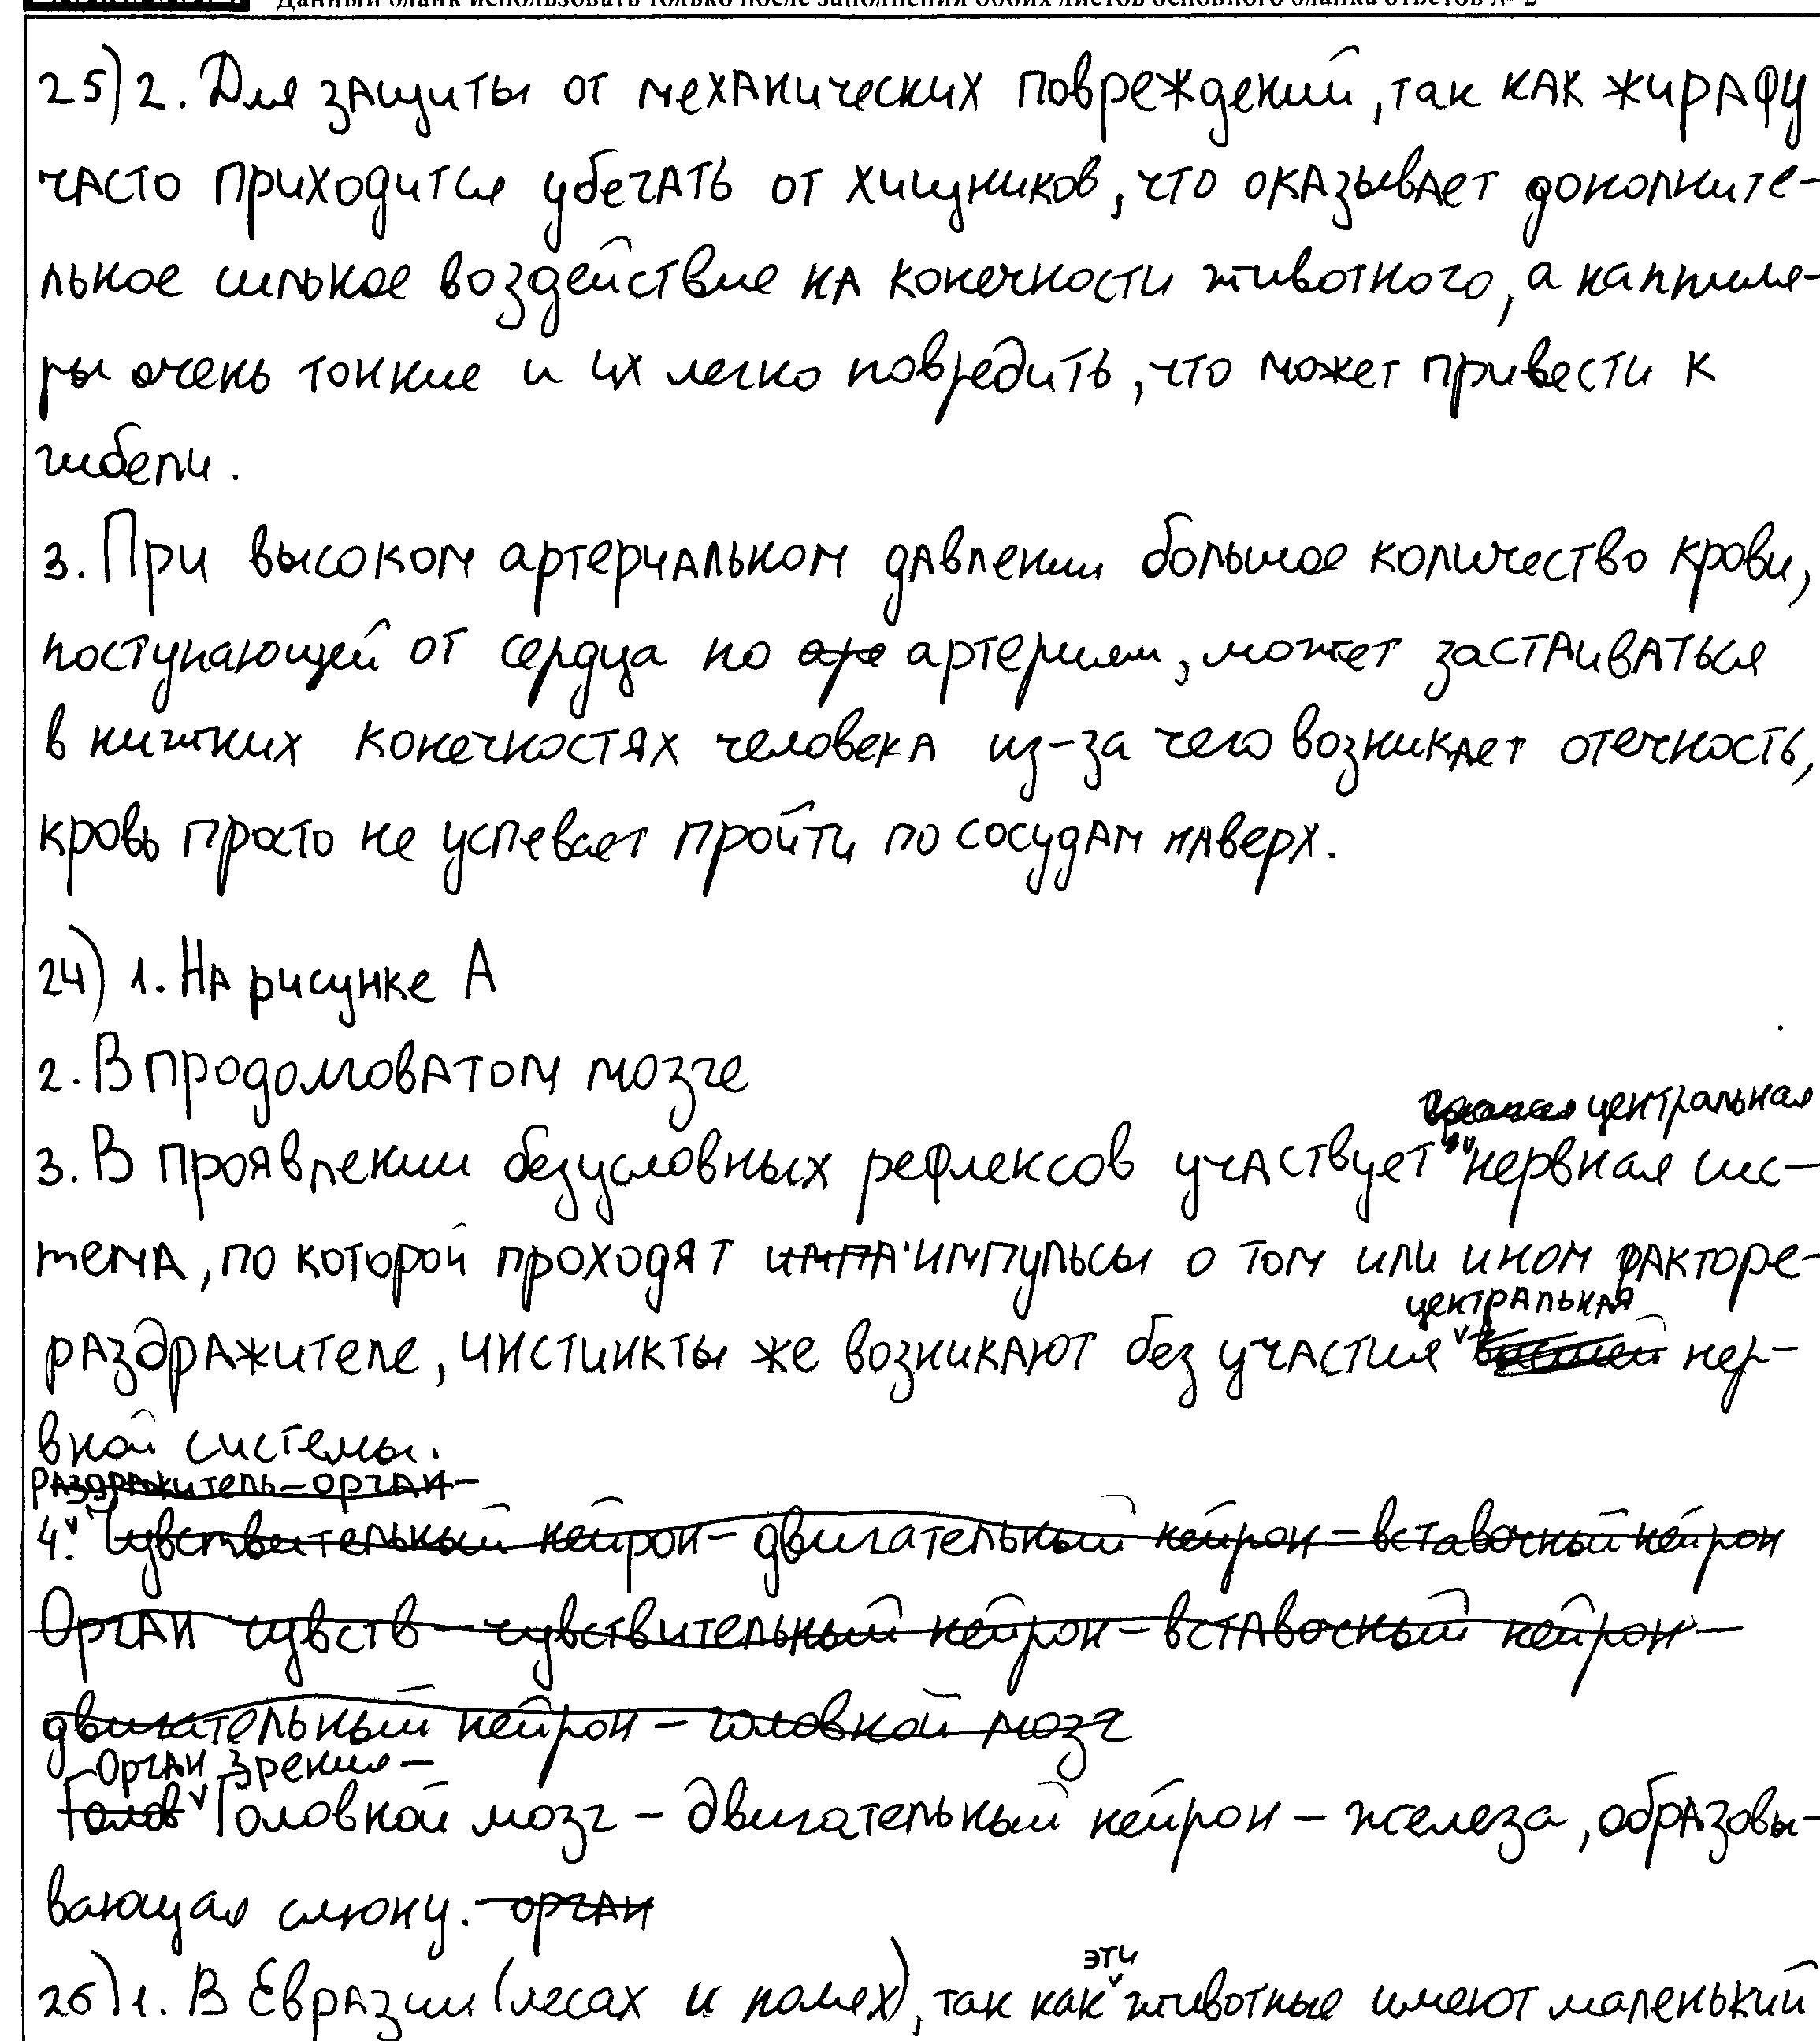 Данный бланк использовать только после заполнения обоих листов основного бланка ответов № 2
25) 2. Для защиты от механических повреждений, так как жирафу
часто приходится убегать от хищников, что оказывает дополните-
льное сильное воздействие на конечности животного, а капиля-
ры очень тонкие и их легко повредить, что может привести к
гибели.
3. При высоком артериальном давлении большое количество крови,
поступающей от сердца по аре артериям, может застаиваться
в нижних конечностях человека из-за чего возникает отечность,
кровь просто не успевает пройти по сосудам наверх.
24) 1. На рисунке А
2. В продолговатом мозге
центральная
3. В проявлении безусловных рефлексов участвует нервная сис-
тема, по которой проходят импа импульсы о том или ином факторе-
центральная
раздражителе, инстинкты же возникают без участия высшей нер-
вной системы.
Раздражитель-орган-
4. Чувствительный нейрон - двигательный нейрон - вставочный нейрон
Орган чувств - чувствительный нейрон - вставочный нейрон -
двигательный нейрон - головной мозг
Орган зрения -
Голов Головной мозг - двигательный нейрон - железа, образовы-
вающая слюну. - орган
эти
26) 1. В Евразии (лесах и полях), так как животные имеют маленький